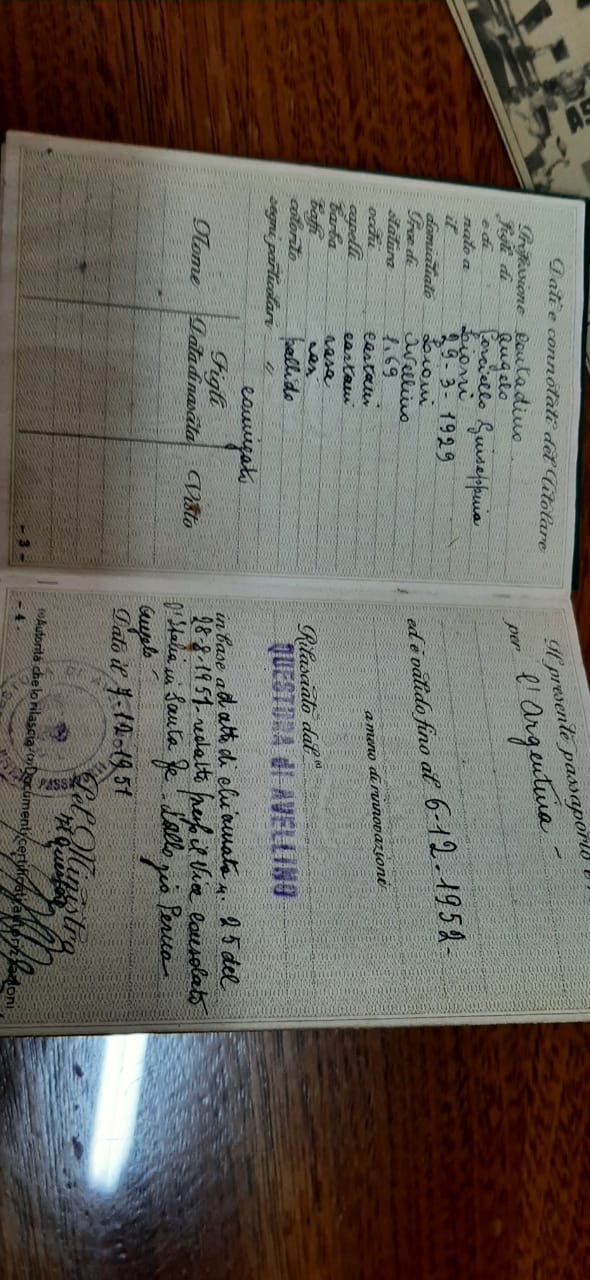 Dati e connotati del Titolare
Professione contadino
figli di Angelo
e di Giuseppina
nato a Lioni
il 29-3-1929
domiciliato Lioni
Prov di Avellino
statura 1,69
occhi castani
capelli castani
barba rasa
baffi rasi
colorito pallido
segni particolari "
coniugato
Figli
Nome Data di nascita Visto
- 3 -
Il presente passaporto è
per l'Argentina -
ed è valido fino al 6-12-1952-
a meno di rinnovazioni
Rilasciato dal (1)
QUESTURA di AVELLINO
in base ad atto di chiamata n. 25 del
28-8-1951 redatto presso il Vice Consolato
d'Italia in Santa Fe - dallo zio
Angelo -
Dato il 7-12-1951
Pel Ministro
Il Questore
PASSAP
(1) Autorità che lo rilascia (2) Documenti, certificati
- 4 -
AS